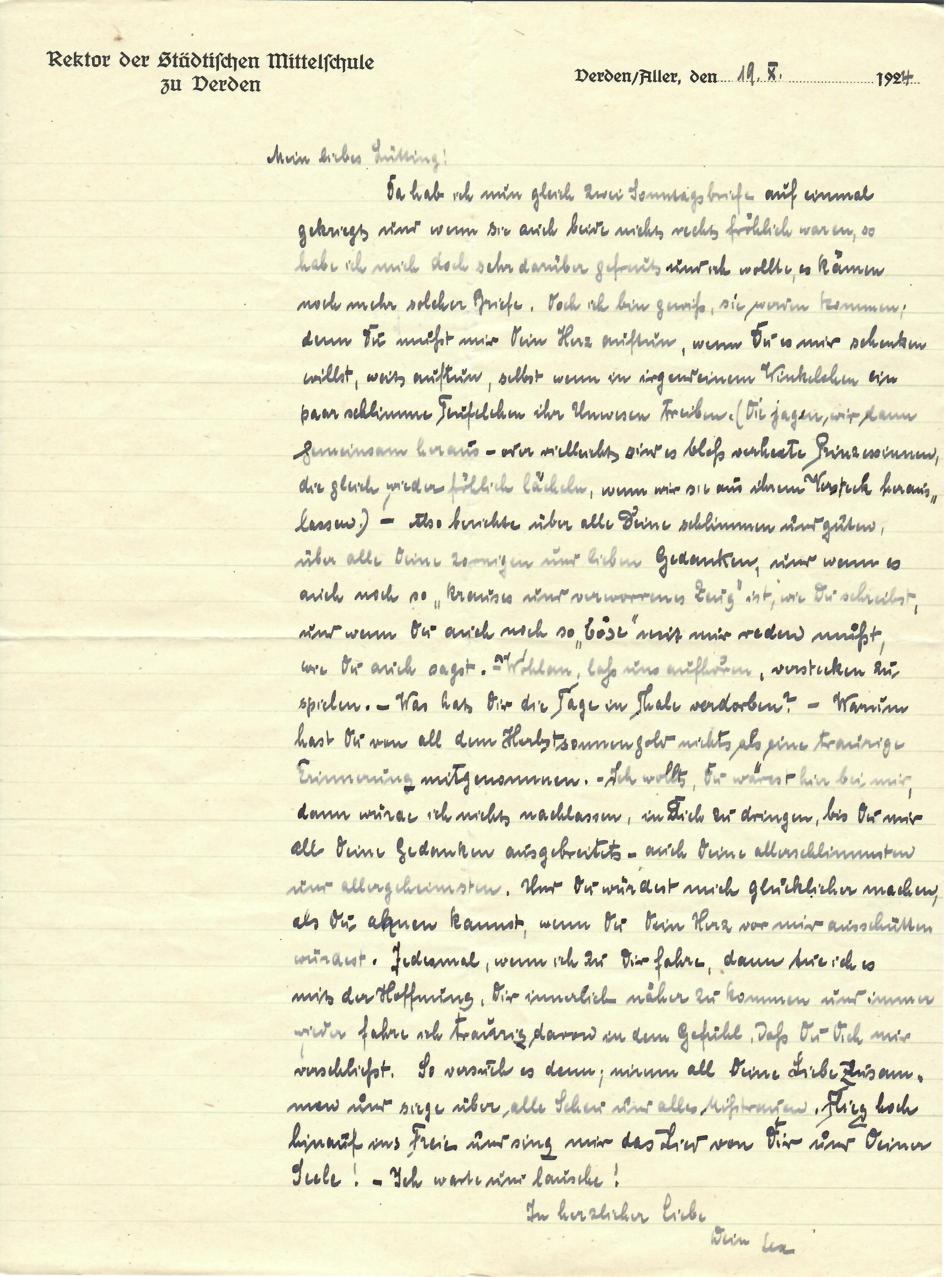 Rektor der Städtischen Mittelschule
zu Verden
Verden/Aller, den 19. X. 1924
Mein liebes Lütting!
Da hab ich nun gleich zwei Sonntagsbriefe auf einmal
gekriegt und wenn sie auch beide nicht recht fröhlich waren, so
habe ich mich doch sehr darüber gefreut und ich wollte, es kämen
noch mehr solcher Briefe. Doch ich bin gewiß, sie werden kommen;
denn Du mußt mir Dein Herz auftun, wenn Du es mir schenken
willst, weit auftun, selbst wenn in irgendeinem Winkelchen ein
paar schlimme Teufelchen ihr Unwesen treiben. (Die jagen wir dann
gemeinsam heraus – oder vielleicht sind es bloß verhexte Prinzessinnen,
die gleich wieder fröhlich lächeln, wenn wir sie aus ihrem Versteck heraus„
lassen.) – Also berichte über alle Deine schlimmen und guten,
über alle Deine zornigen und lieben Gedanken, und wenn es
auch noch so „krauses und verworrenes Zeug" ist, wie Du schreibst,
und wenn Du auch noch so „böse" mit mir reden mußt,
wie Du auch sagst. – Wohlan, laß uns aufhören, verstecken zu
spielen. – Was hat Dir die Tage in Thale verdorben? – Warum
hast Du von all dem Herbstsonnengold nichts als eine traurige
Erinnerung mitgenommen. – Ich wollt, Du wärest hier bei mir,
dann würde ich nicht nachlassen, in Dich zu dringen, bis Du mir
all Deine Gedanken ausgebreitet – auch Deine allerschlimmsten
und allergeheimsten. Und Du würdest mich glücklicher machen,
als Du ahnen kannst, wenn Du Dein Herz vor mir ausschütten
würdest. Jedesmal, wenn ich zu Dir fahre, dann tue ich es
mit der Hoffnung, Dir innerlich näher zu kommen und immer
wieder fahre ich traurig davon in dem Gefühl, daß Du Dich mir
verschließt. So versuch es denn; nimm all Deine Liebe zusam-
men und siege über alle Scheu und alles Mißtrauen. Flieg hoch
hinauf ins Freie und sing mir das Lied von Dir und Deiner
Seele! – Ich warte und lausche!
In herzlicher Liebe
Dein